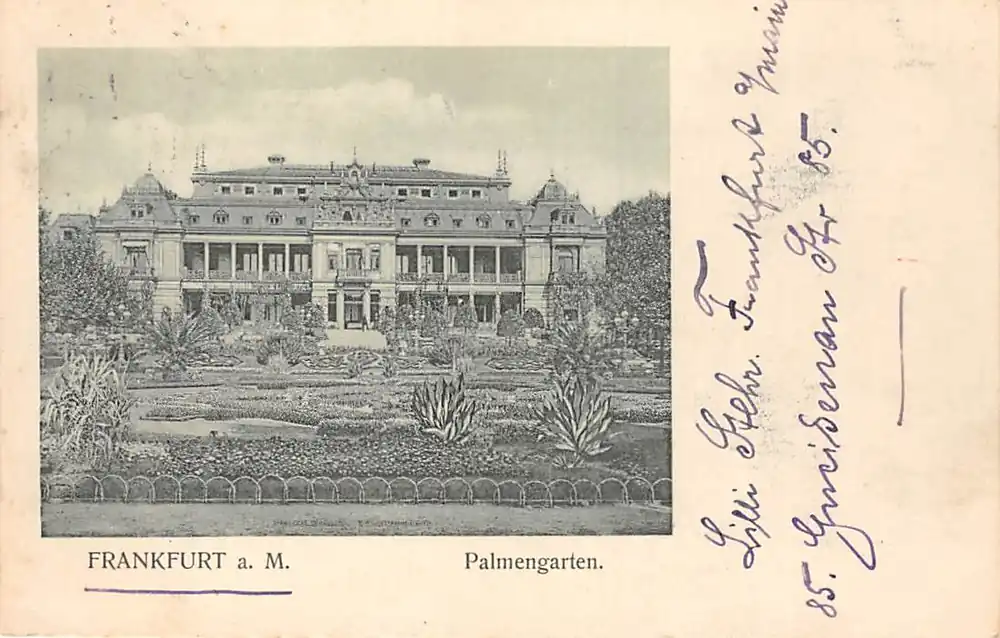 FRANKFURT a. M.
Palmengarten.
Lilli Stehr. Frankfurt Main
85. Gneisenau Str 85.